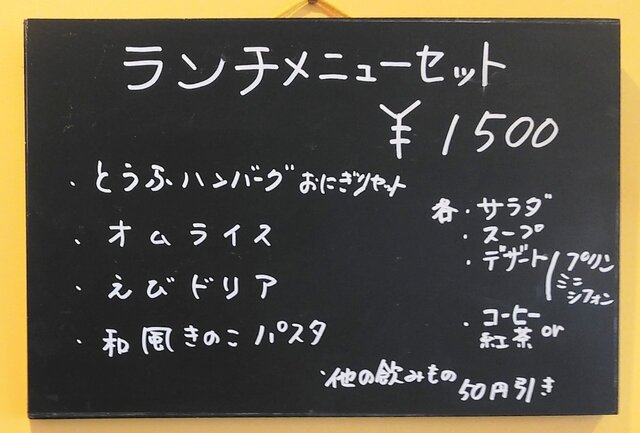 ランチメニューセット
¥1500
・とうふハンバーグ おにぎりセット
・オムライス
・えびドリア
・和風きのこパスタ
各・サラダ
・スープ
・デザート(プリン
ミニ
シフォン
・コーヒー or
紅茶
・他の飲みもの 50円引き